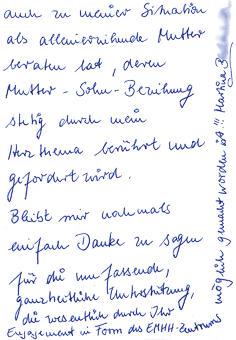 auch zu meiner Situation
als alleinerziehende Mutter
beraten hat, deren
Mutter-Sohn-Beziehung
stetig durch mein
Herzthema berührt und
gefordert wird.
Bleibt mir nochmals
einfach Danke zu sagen
für die umfassende,
ganzheitliche Unterstützung,
die wesentlich durch Ihr
Engagement in Form des EMHH-Zentrums
möglich gemacht worden ist!!! Martina B